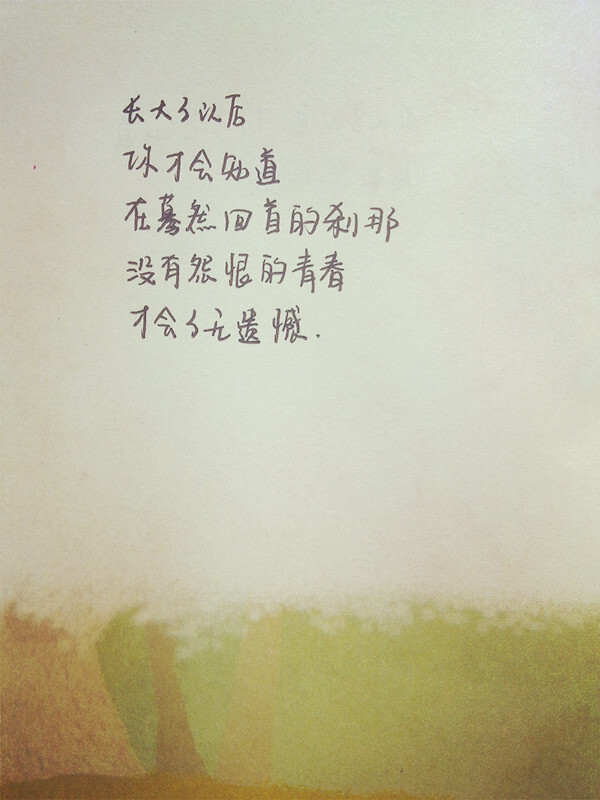 长大了以后
你才会知道
在蓦然回首的刹那
没有怨恨的青春
才会了无遗憾.